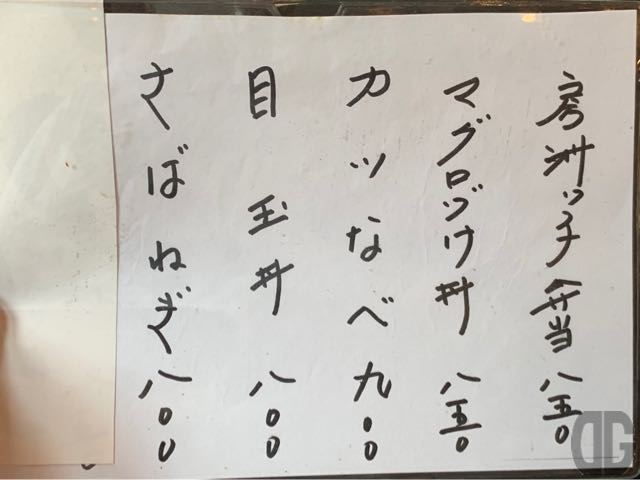 房洲ッ子弁当 八五〇
マグロヅけ丼 八五〇
カツなべ 九〇〇
目玉丼 八〇〇
さばねぎ 八〇〇
DG